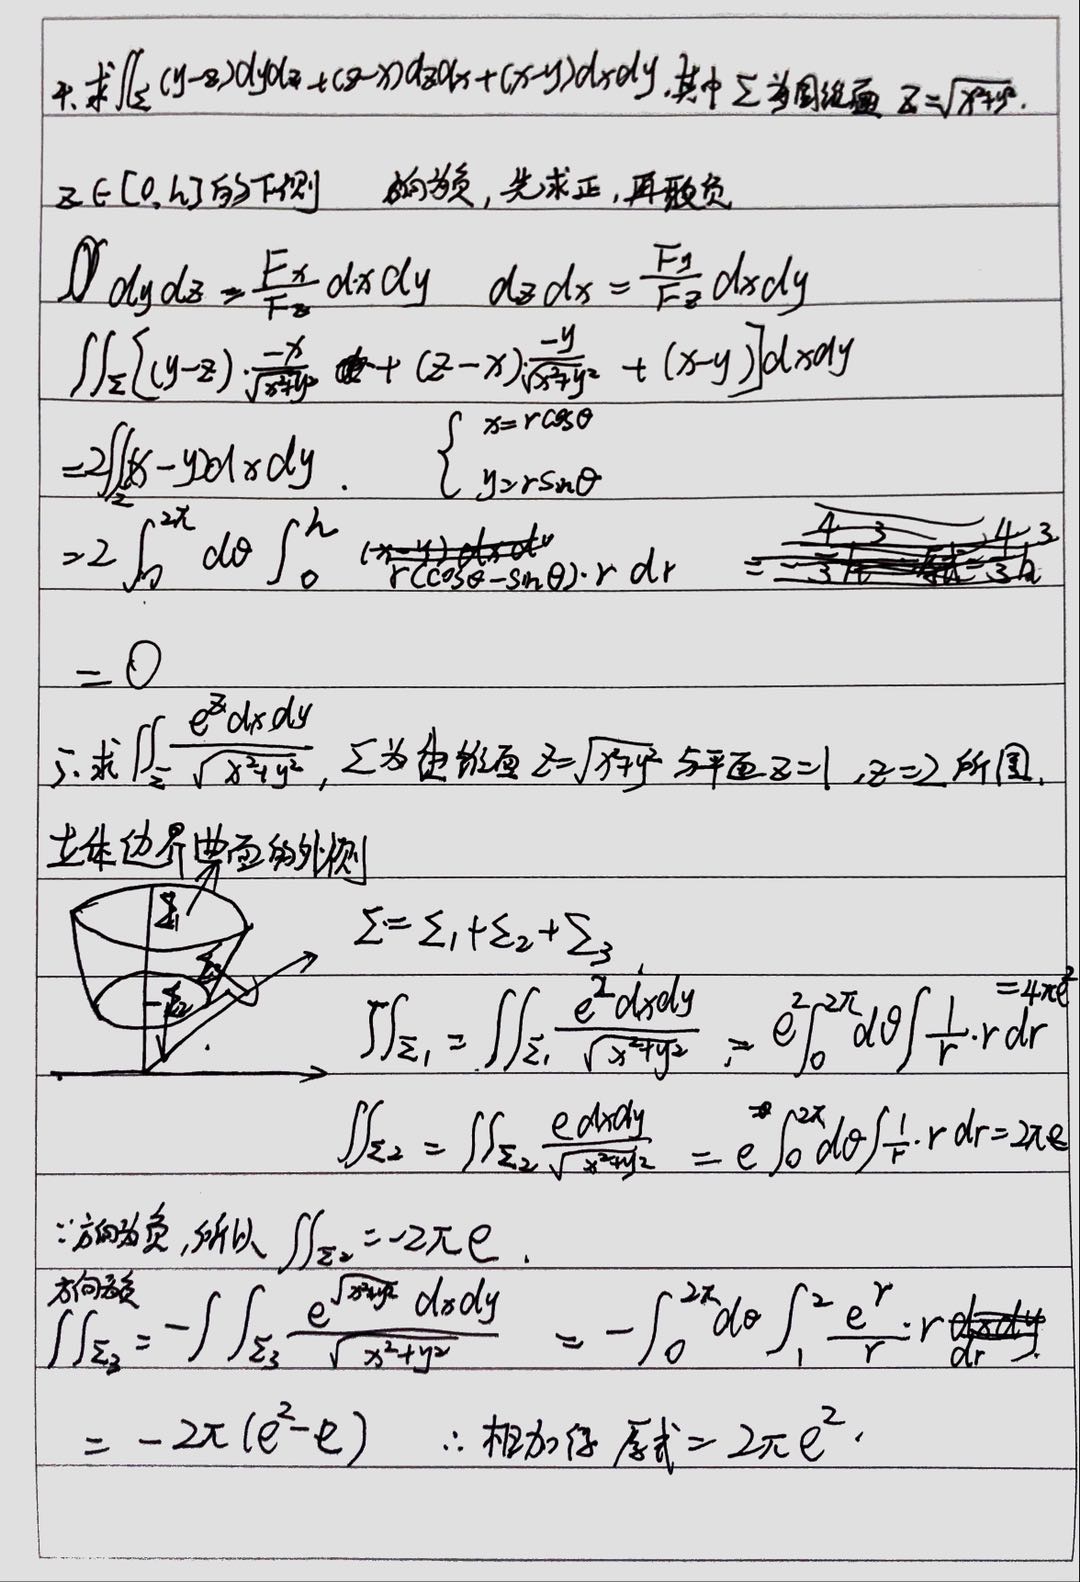 4. 求∬_Σ (y-z)dydz+(z-x)dzdx+(x-y)dxdy, 其中Σ为圆锥面 z=√(x²+y²).
z∈[0,h]的下侧 方向为负, 先求正, 再取负
dydz = Fx/Fz dxdy dzdx = Fy/Fz dxdy
∬_Σ [(y-z)·(-x)/√(x²+y²) + (z-x)·(-y)/√(x²+y²) + (x-y)]dxdy
=2∬_Σ(x-y)dxdy. { x=rcosθ y=rsinθ
=2∫₀^{2π} dθ ∫₀^h r(cosθ-sinθ)·r dr
= 0
5. 求∬_Σ e^z dxdy/√(x²+y²), Σ为由锥面 z=√(x²+y²) 与平面 z=1, z=2 所围
立体边界曲面的外侧
Σ1
Σ=Σ₁+Σ₂+Σ₃
Σ3
Σ2
∬_Σ₁ = ∬_Σ₁ e²dxdy/√(x²+y²) = e²∫₀^{2π}dθ∫ 1/r·r dr =4πe²
∬_Σ₂ = ∬_Σ₂ e dxdy/√(x²+y²) = e∫₀^{2π}dθ∫ 1/r·r dr=2πe
∵方向为负, 所以 ∬_Σ₂ =-2πe.
方向为负
∬_Σ₃ = -∬_Σ₃ e^{√(x²+y²)} dxdy/√(x²+y²) = -∫₀^{2π}dθ∫₁² e^r/r·r dr.
= -2π(e²-e) ∴相加得 原式=2πe².